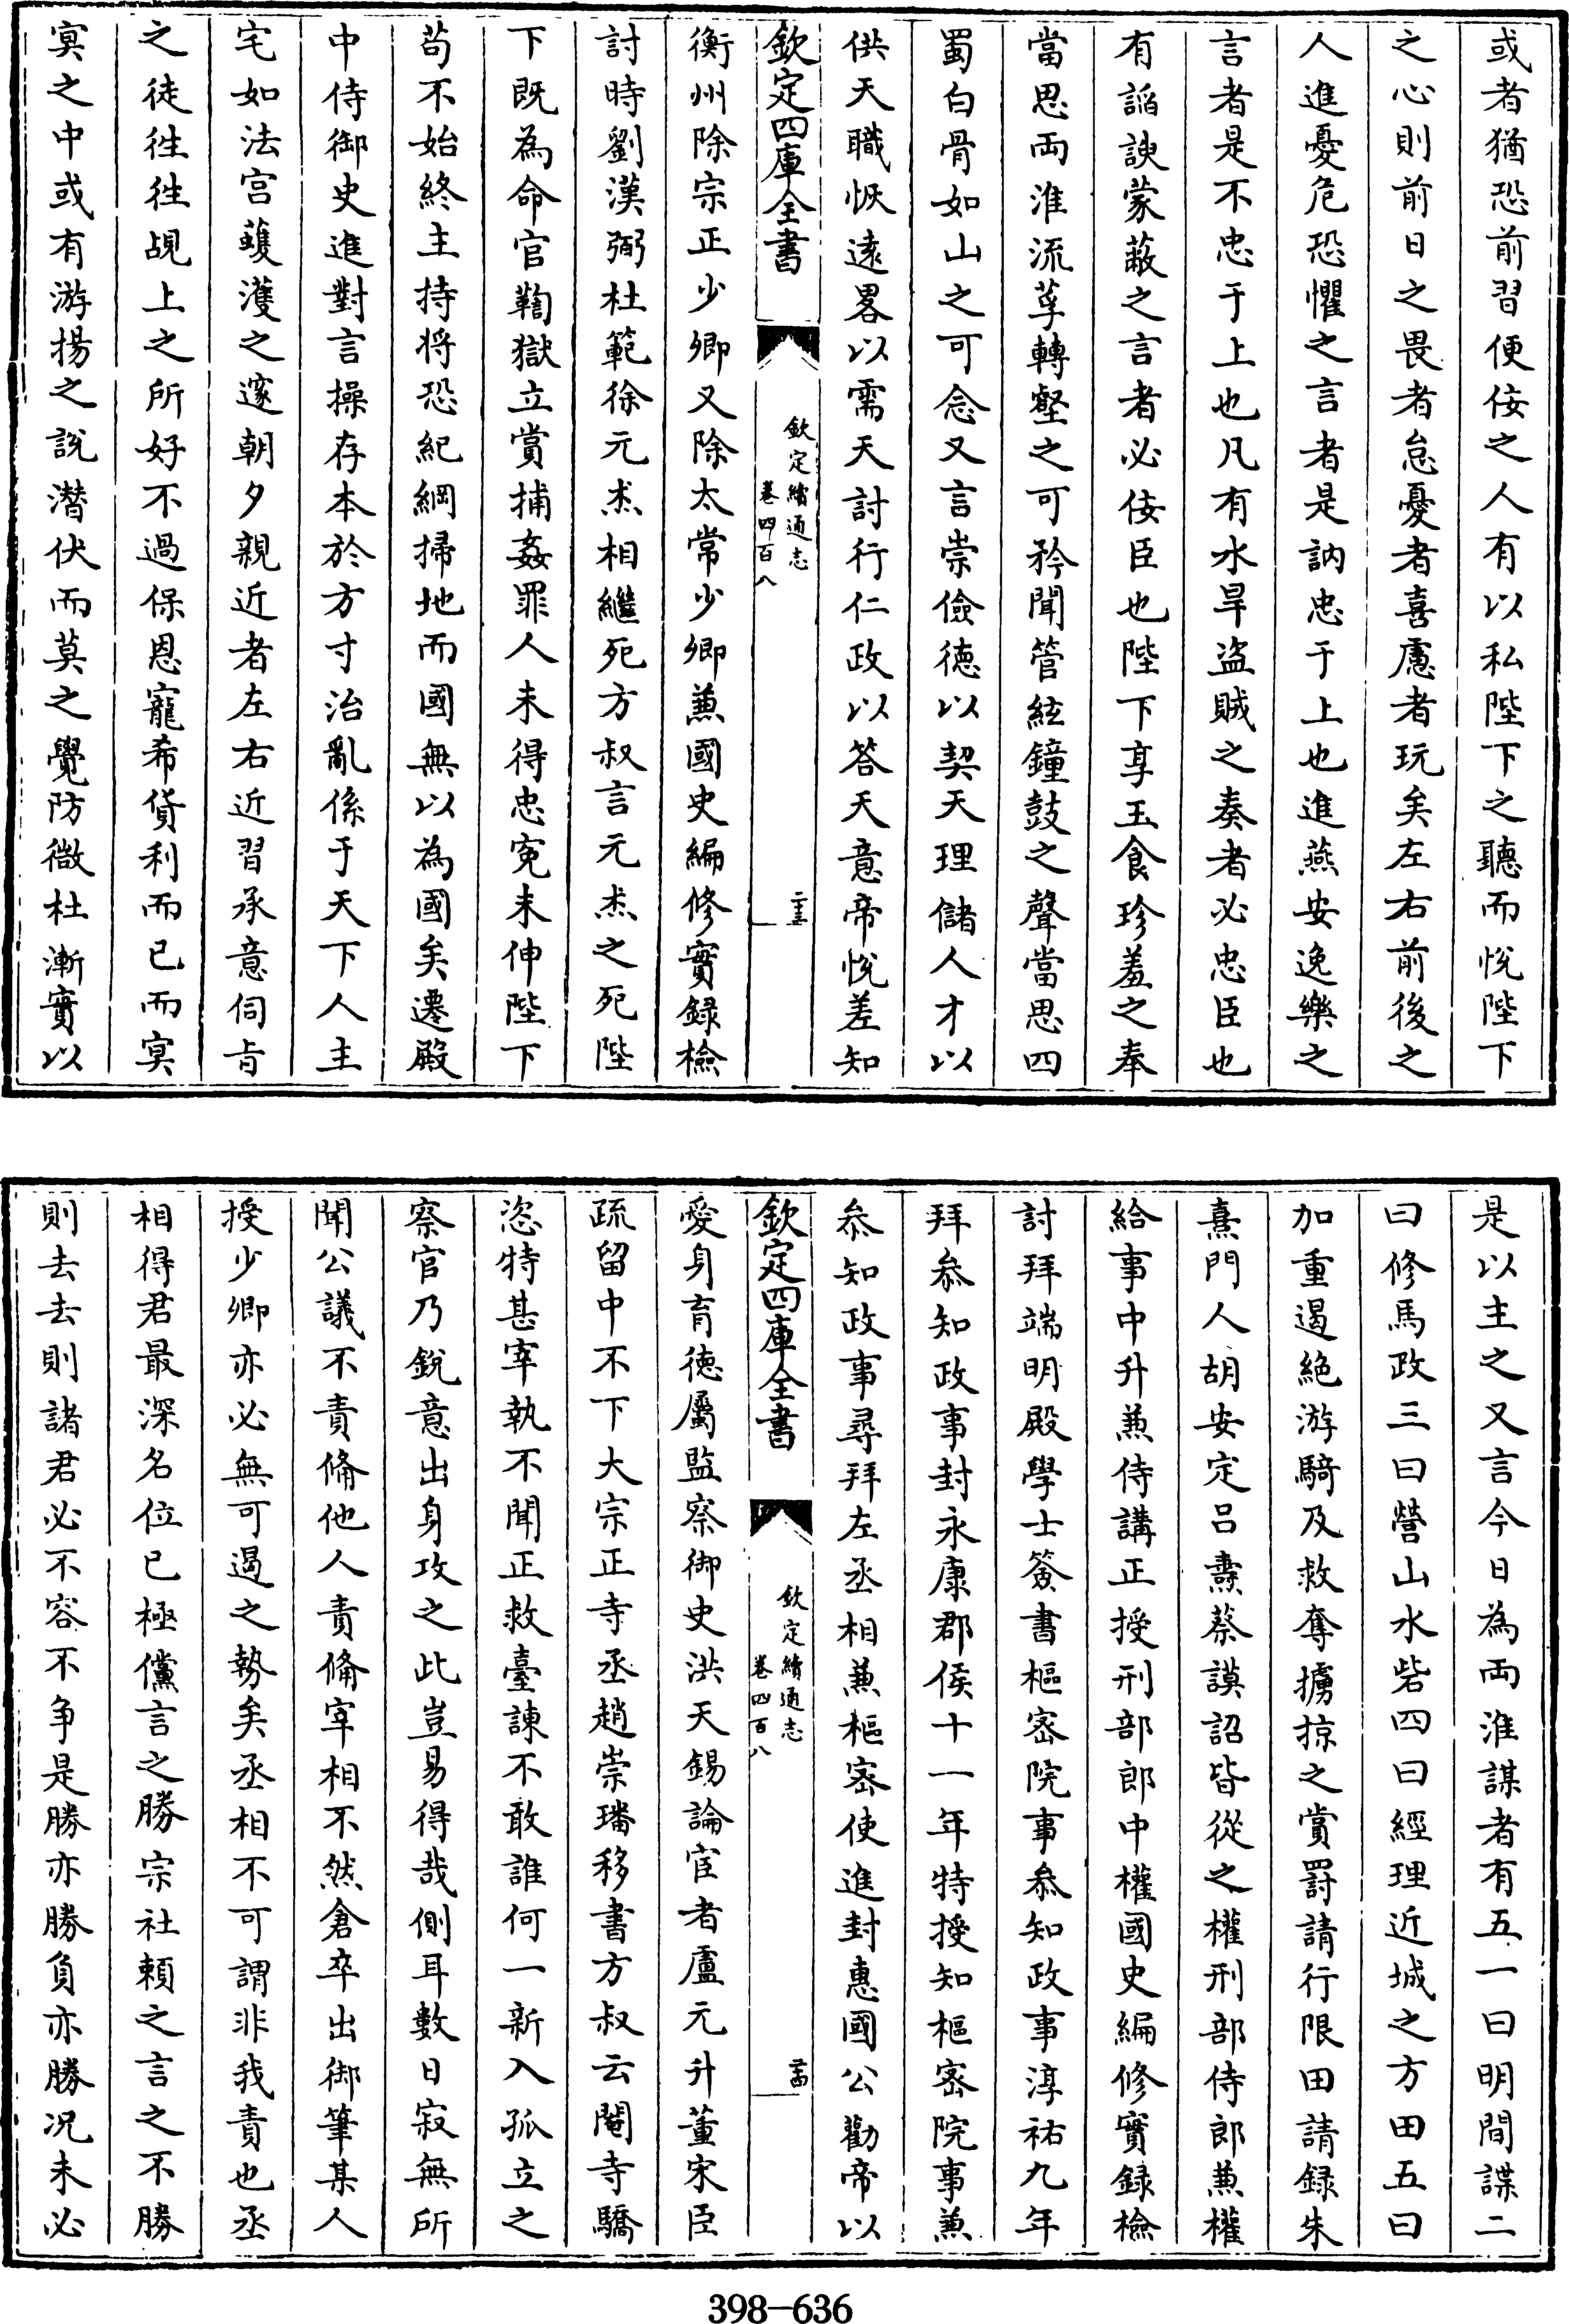 或者猶恐前習便佞之人有以私陛下之聽而悅陛下
之心則前日之畏者怠憂者喜慮者玩矣左右前後之
人進憂危恐懼之言者是訥忠于上也進燕安逸樂之
言者是不忠于上也凡有水旱盜賊之奏者必忠臣也
有謟諛蒙蔽之言者必佞臣也陛下享玉食珍羞之奉
當思兩淮流莩轉壑之可矜聞管絃鐘鼓之聲當思四
蜀白骨如山之可念又言崇儉德以契天理儲人才以
供天職恢遠畧以需天討行仁政以答天意帝悅差知
欽定四庫全書
欽定續通志
卷四百八
二十三
衡州除宗正少卿又除太常少卿兼國史編修實録檢
討時劉漢弼杜範徐元杰相繼死方叔言元杰之死陛
下既為命官鞫獄立賞捕姦罪人未得忠寃未伸陛下
苟不始終主持将恐紀綱掃地而國無以為國矣遷殿
中侍御史進對言操存本於方寸治亂係于天下人主
宅如法宫蠖濩之邃朝夕親近者左右近習承意伺㫖
之徒徃徃覘上之所好不過保恩寵希貨利而已而㝠
㝠之中或有游揚之說潛伏而莫之覺防微杜漸實以
是以主之又言今日為兩淮謀者有五一曰明間諜二
曰修馬政三曰營山水砦四曰經理近城之方田五曰
加重遏絶游騎及救奪擄掠之賞罰請行限田請録朱
熹門人胡安定吕燾蔡謨詔皆從之權刑部侍郎兼權
給事中升兼侍講正授刑部郎中權國史編修實録檢
討拜端明殿學士簽書樞宻院事叅知政事淳祐九年
拜叅知政事封永康郡侯十一年特授知樞宻院事兼
叅知政事尋拜左丞相兼樞宻使進封惠國公勸帝以
欽定四庫全書
欽定續通志
卷四百八
二十四
愛身育德屬監察御史洪天錫論宦者盧元升董宋臣
疏留中不下大宗正寺丞趙崇璠移書方叔云閹寺驕
恣特甚宰執不聞正救臺諫不敢誰何一新入孤立之
察官乃銳意出身攻之此豈易得哉側耳數日寂無所
聞公議不責備他人責備宰相不然倉卒出御筆某人
授少卿亦必無可遏之勢矣丞相不可謂非我責也丞
相得君最深名位已極儻言之勝宗社頼之言之不勝
則去去則諸君必不容不爭是勝亦勝負亦勝况未必
398-636